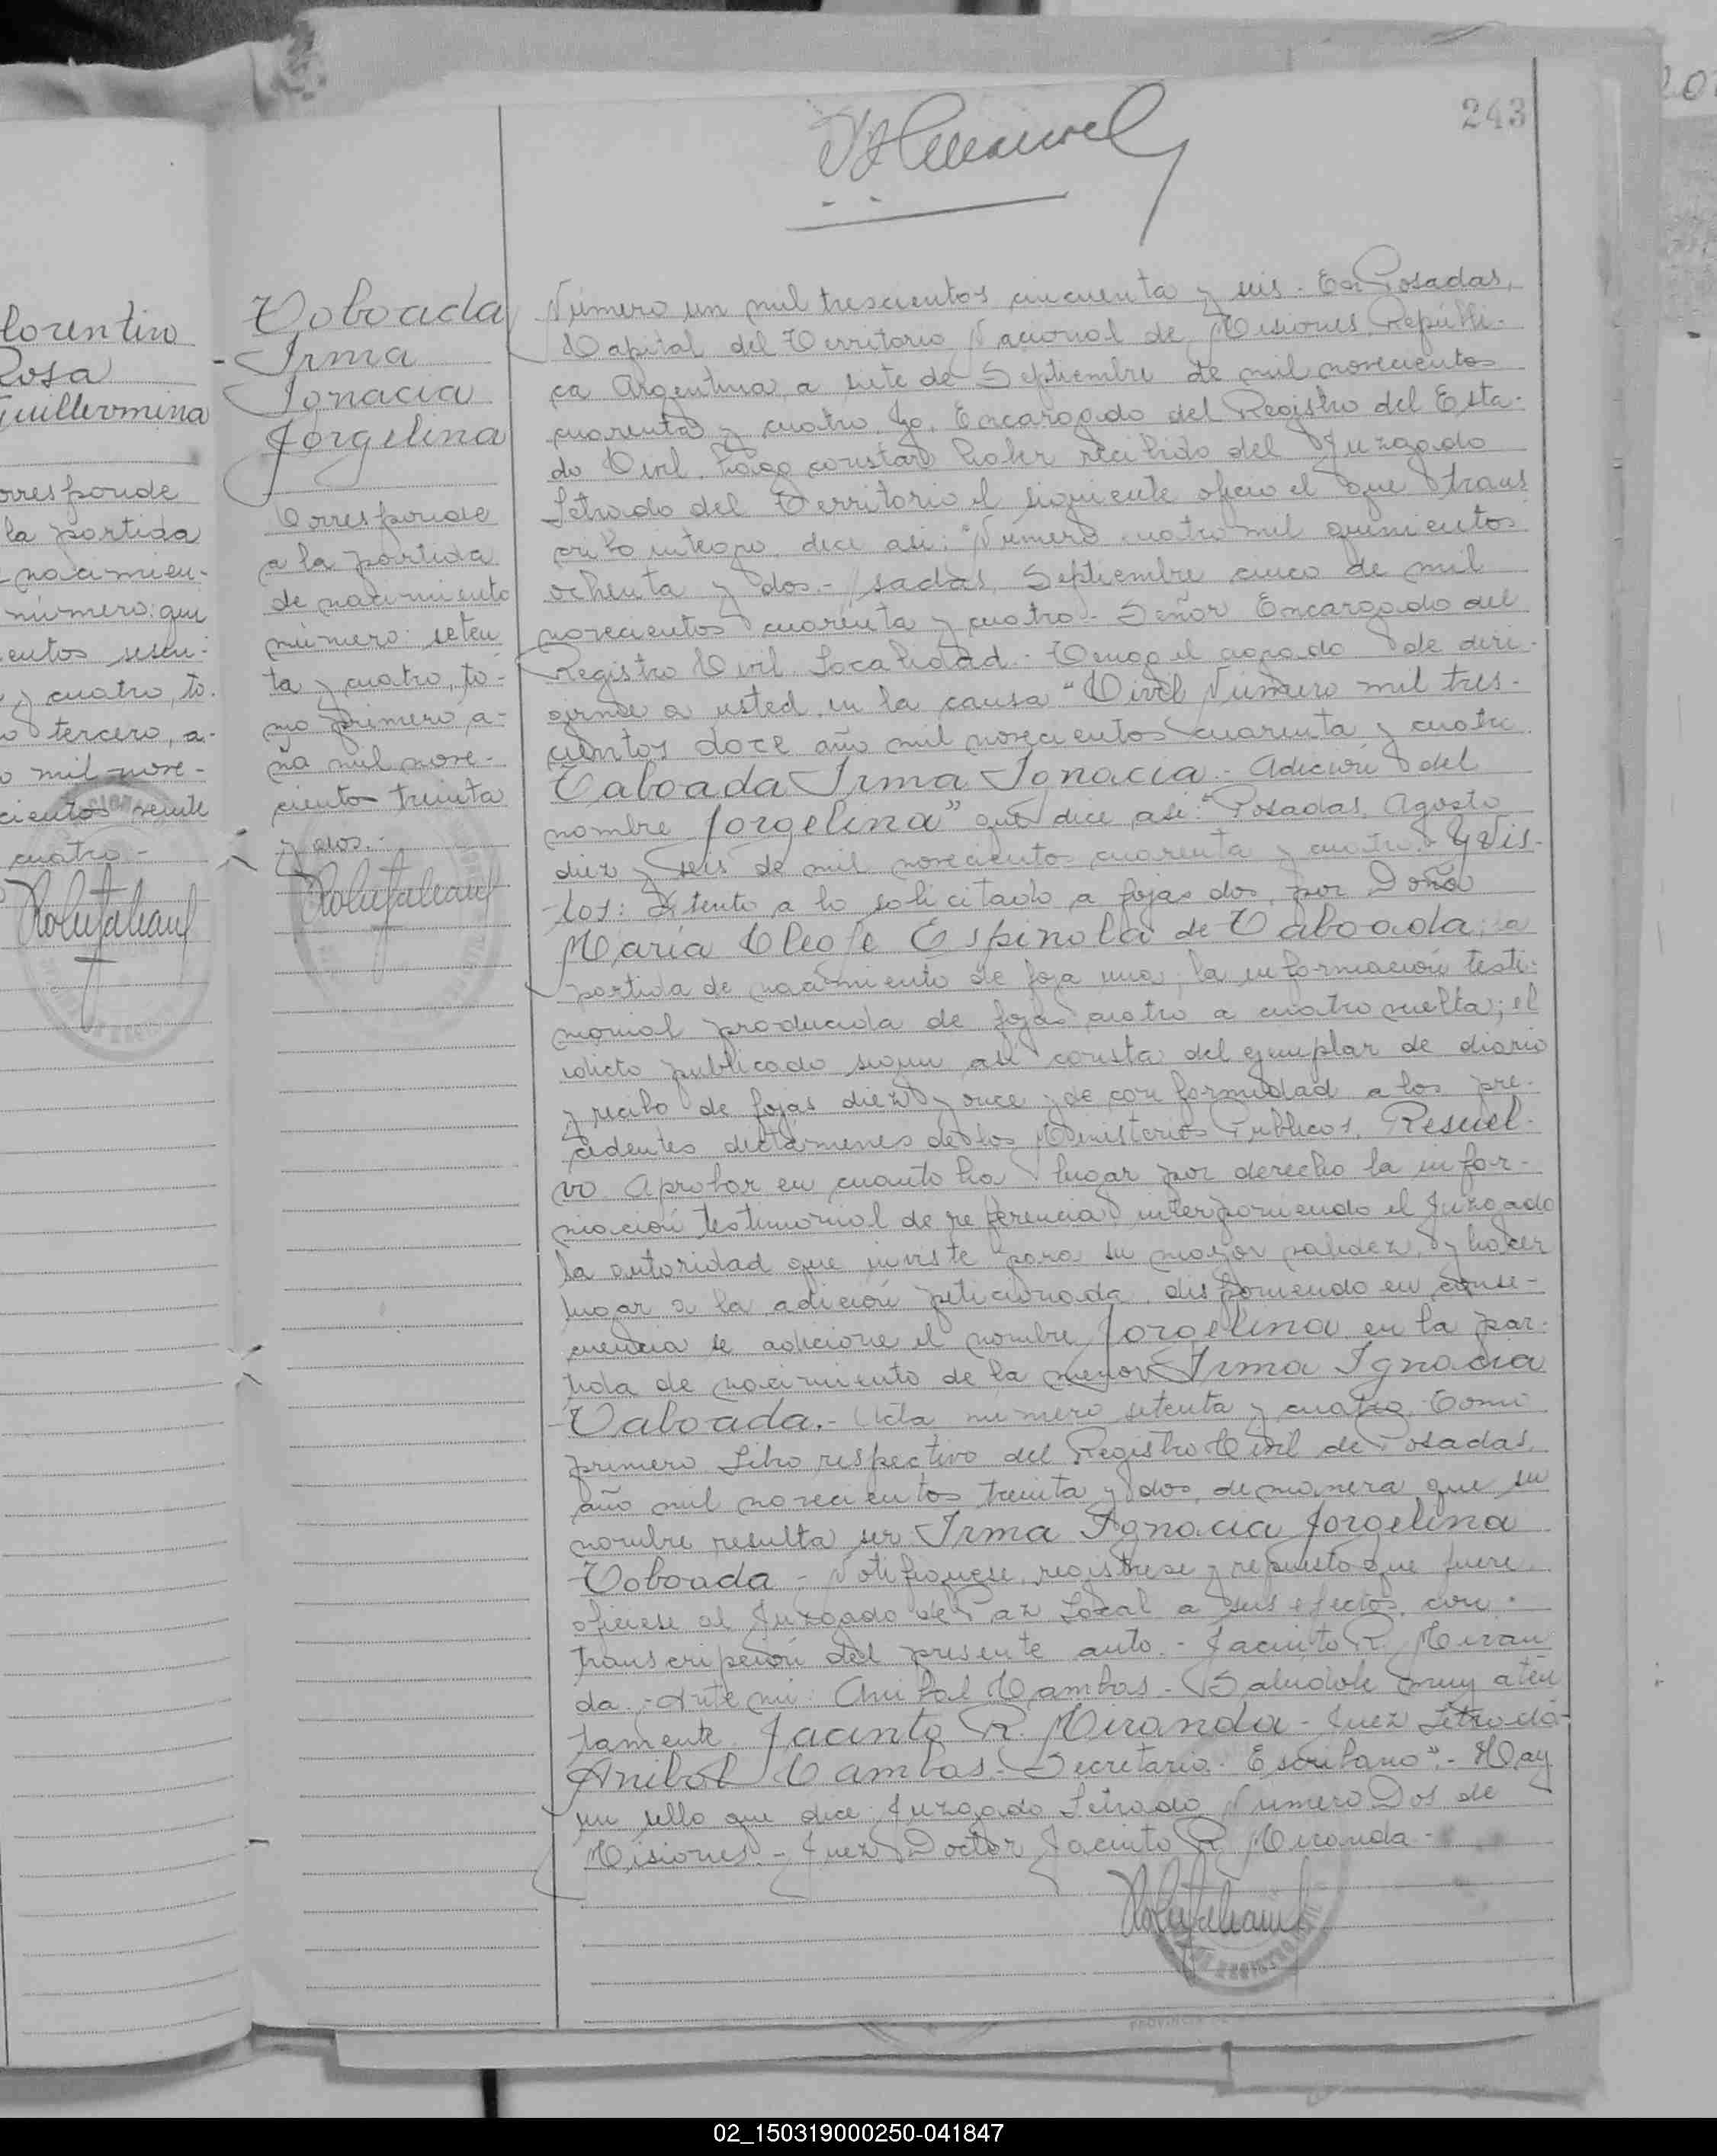 243
lorentino
Rosa
Guillermina
orresponde
la partida
nacimien-
número: qui
entos sesen-
y cuatro, to-
o tercero, a-
o mil nove-
cientos veinte
cuatro.-
Taboada
Irma
Ignacia
Jorgelina
Corresponde
a la partida
de nacimiento
número: seten
ta y cuatro, to-
mo primero, a-
ño mil nove-
cientos treinta
y dos.-
Número un mil trescientos cincuenta y seis.- En Posadas,
Capital del Territorio Nacional de Misiones, Repúbli-
ca Argentina, a siete de Septiembre de mil novecientos
cuarenta y cuatro. Yo, Encargado del Registro del Esta-
do Civil, hago constar haber recibido del Juzgado
Letrado del Territorio el siguiente oficio el que trans
cribo integro, dice asi: "Número cuatro mil quinientos
ochenta y dos.- sadas, Septiembre cinco de mil
novecientos cuarenta y cuatro.- Señor Encargado del
Registro Civil. Localidad.- Tengo el agrado de diri-
girme a usted, en la causa "Civil Número mil tres-
cientos doce año mil novecientos cuarenta y cuatro.
Taboada Irma Ignacia.- Adición del
nombre Jorgelina" que dice asi: "Posadas, Agosto
diez y seis de mil novecientos cuarenta y cuatro.- Y Vis-
tos: Atento a lo solicitado a fojas dos, por Doña
María Cleofe Espinola de Taboada; la
partida de nacimiento de foja una; la información testi-
monial producida de fojas cuatro a cuatro vuelta; el
edicto publicado segun asi consta del ejemplar de diario
y recibo de fojas diez y once y de conformidad a los pre-
cedentes dictamenes de los Ministerios Publicos, Resuel-
vo Aprobar en cuanto ha lugar por derecho la infor-
mación testimonial de referencia, interponiendo el Juzgado
la autoridad que inviste para su mayor validez, y hacer
lugar a la adición peticionada, disponiendo en conse-
cuencia se adicione el nombre Jorgelina en la par-
tida de nacimiento de la menor Irma Ignacia
Taboada.- Acta número setenta y cuatro, Tomo
primero Libro respectivo del Registro Civil de Posadas,
año mil novecientos treinta y dos, de manera que su
nombre resulta ser Irma Ignacia Jorgelina
Taboada.- Notifiquese, registrese y repuesto que fuere,
oficiese al Juzgado de Paz Local a sus efectos, con
transcripción del presente auto.- Jacinto R. Miran
da.- Ante mi: Anibal Cambas.- Saludole muy aten
tamente. Jacinto R. Miranda.- Juez Letrado-
Anibal Cambas.- Secretario. Escribano".- Hay
un sello que dice: Juzgado Letrado Número Dos de
Misiones.- Juez Doctor Jacinto R. Miranda.-
02_150319000250-041847